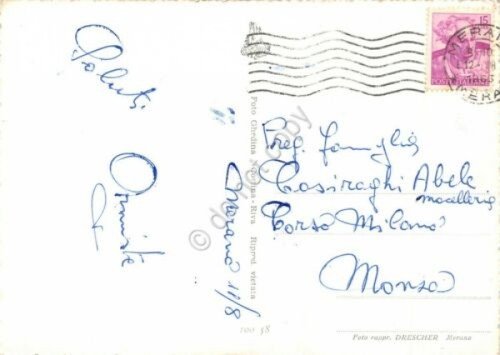 Saluti
Merano 11/8
Foto Ghedina
Riva Riprod. vietata
Preg. famiglia
Casiraghi Abele
macelleria
Corso Milano
Monza
15
MERANO
100 58
Foto rappr. DRESCHER Merano
do not copy